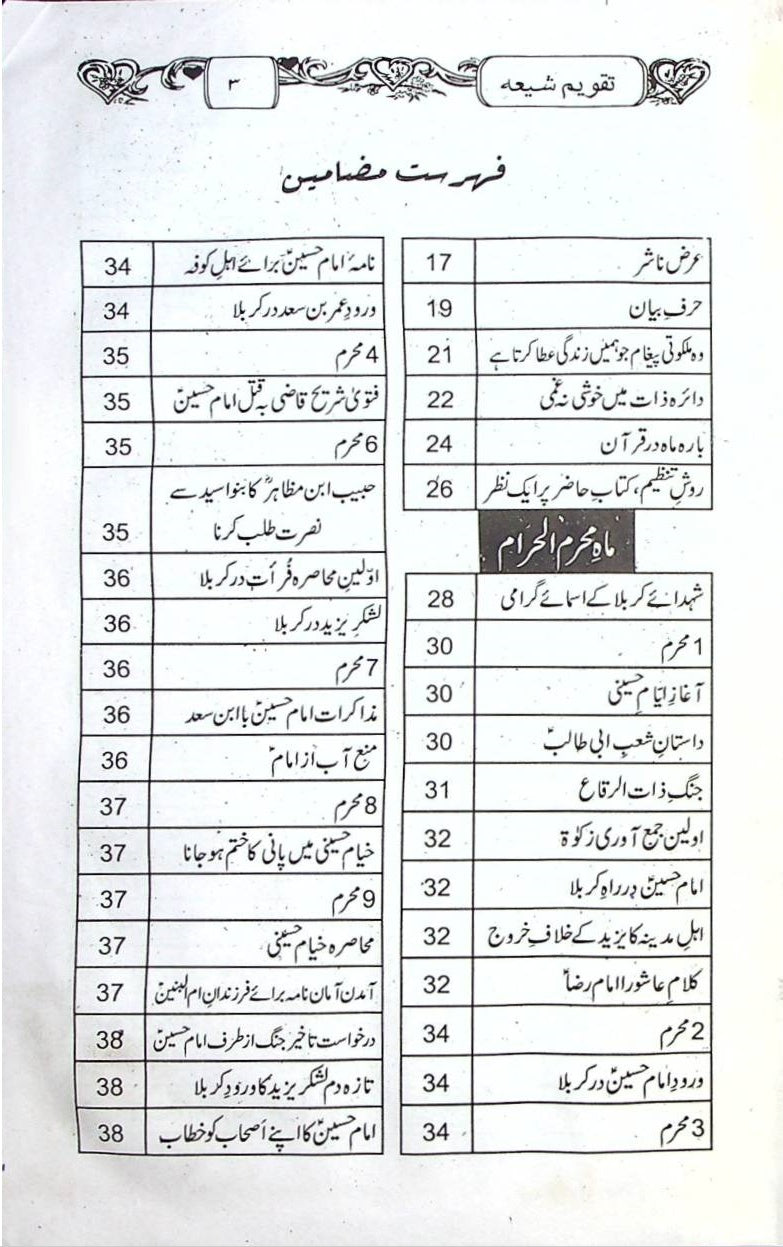 تقویم شیعہ
۳
فہرست مضامین
عرض ناشر 17
حرفِ بیان 19
وہ ملکوتی پیغام جو ہمیں زندگی عطا کرتا ہے 21
دائرہ ذات میں خوشی نہ غمی 22
بارہ ماہ در قرآن 24
روشِ تنظیم، کتاب حاضر پر ایک نظر 26
ماہِ محرم الحرام
شہدائے کربلا کے اسمائے گرامی 28
1 محرم 30
آغازِ ایامِ حسینی 30
داستانِ شعبِ ابی طالبؑ 30
جنگِ ذات الرقاع 31
اولین جمع آوری زکوٰۃ 32
امام حسینؑ در راہِ کربلا 32
اہلِ مدینہ کا یزید کے خلاف خروج 32
کلامِ عاشورا امام رضاؑ 32
2 محرم 34
ورودِ امام حسینؑ در کربلا 34
3 محرم 34
نامۂ امام حسینؑ برائے اہلِ کوفہ 34
ورودِ عمر بن سعد در کربلا 34
4 محرم 35
فتویٰ شریح قاضی بہ قتل امام حسینؑ 35
6 محرم 35
حبیب ابن مظاہرؓ کا بنو اسید سے
نصرت طلب کرنا 35
اوّلینِ محاصرہ فُرات در کربلا 36
لشکرِ یزید در کربلا 36
7 محرم 36
مذاکرات امام حسینؑ با ابن سعد 36
منعِ آب از امامؑ 36
8 محرم 37
خیام حسینی میں پانی کا ختم ہو جانا 37
9 محرم 37
محاصرہ خیام حسینی 37
آمدن آمان نامہ برائے فرزندانِ ام البنینؑ 37
درخواست تاخیر جنگ از طرف امام حسینؑ 38
تازہ دم لشکر یزید کا ورودِ کربلا 38
امام حسینؑ کا اپنے اصحاب کو خطاب 38